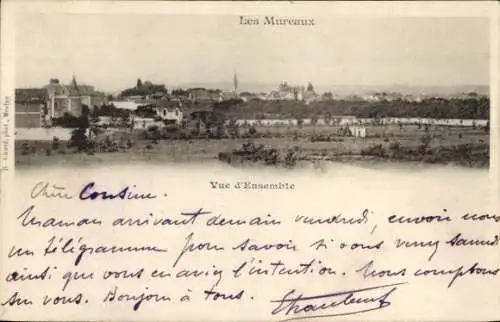 Les Mureaux
Vue d'Ensemble
Chère Cousine.
Maman arrivant demain vendredi, envoir nous
un télégramme pour savoir si vous venez Samedi
ainsi que vous en aviez l'intention. Nous comptons
sur vous. Bonjour à tous.